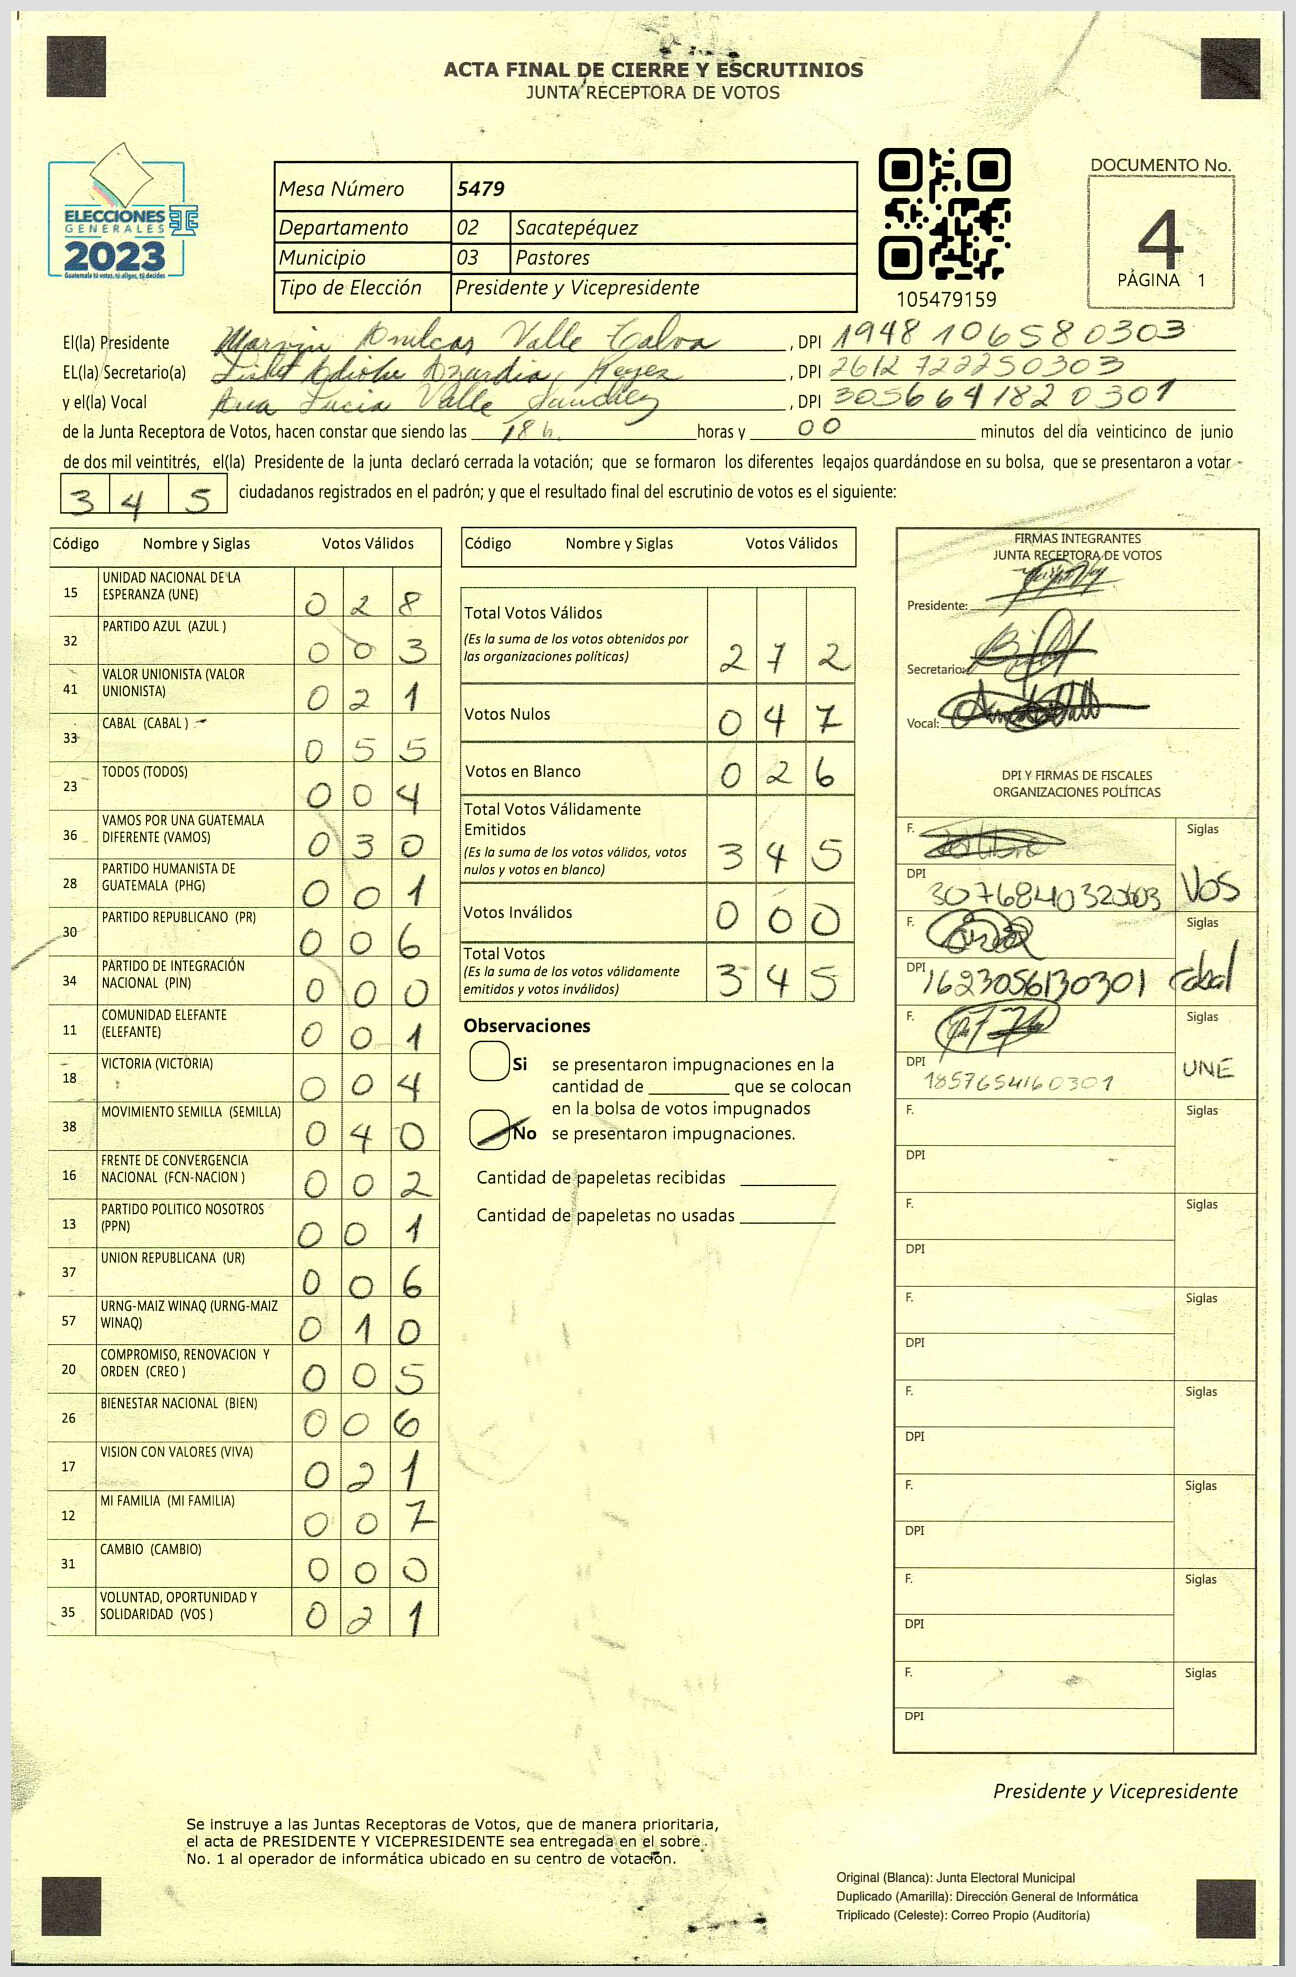 ACTA FINAL DE CIERRE Y ESCRUTINIOS
JUNTA RECEPTORA DE VOTOS
ELECCIONES
GENERALES
2023
Guatemala tú votas, tú eliges, tú decides
Mesa Número 5479
Departamento 02 Sacatepéquez
Municipio 03 Pastores
Tipo de Elección Presidente y Vicepresidente
105479159
DOCUMENTO No.
4
PÁGINA 1
El(la) Presidente Marvin Amilcar Valle , DPI 1948106580303
EL(la) Secretario(a) Reyes , DPI 2612722250303
y el(la) Vocal Ana Lucia Valle Sanchez , DPI 3056641820301
de la Junta Receptora de Votos, hacen constar que siendo las 18 h. horas y 00 minutos del día veinticinco de junio
de dos mil veintitrés, el(la) Presidente de la junta declaró cerrada la votación; que se formaron los diferentes legajos guardándose en su bolsa, que se presentaron a votar
3 4 5 ciudadanos registrados en el padrón; y que el resultado final del escrutinio de votos es el siguiente:
Código Nombre y Siglas Votos Válidos
15 UNIDAD NACIONAL DE LA ESPERANZA (UNE) 0 2 8
32 PARTIDO AZUL (AZUL ) 0 0 3
41 VALOR UNIONISTA (VALOR UNIONISTA) 0 2 1
33 CABAL (CABAL ) 0 5 5
23 TODOS (TODOS) 0 0 4
36 VAMOS POR UNA GUATEMALA DIFERENTE (VAMOS) 0 3 0
28 PARTIDO HUMANISTA DE GUATEMALA (PHG) 0 0 1
30 PARTIDO REPUBLICANO (PR) 0 0 6
34 PARTIDO DE INTEGRACIÓN NACIONAL (PIN) 0 0 0
11 COMUNIDAD ELEFANTE (ELEFANTE) 0 0 1
18 VICTORIA (VICTORIA) 0 0 4
38 MOVIMIENTO SEMILLA (SEMILLA) 0 4 0
16 FRENTE DE CONVERGENCIA NACIONAL (FCN-NACION ) 0 0 2
13 PARTIDO POLITICO NOSOTROS (PPN) 0 0 1
37 UNION REPUBLICANA (UR) 0 0 6
57 URNG-MAIZ WINAQ (URNG-MAIZ WINAQ) 0 1 0
20 COMPROMISO, RENOVACION Y ORDEN (CREO ) 0 0 5
26 BIENESTAR NACIONAL (BIEN) 0 0 6
17 VISION CON VALORES (VIVA) 0 2 1
12 MI FAMILIA (MI FAMILIA) 0 0 7
31 CAMBIO (CAMBIO) 0 0 0
35 VOLUNTAD, OPORTUNIDAD Y SOLIDARIDAD (VOS ) 0 2 1
Código Nombre y Siglas Votos Válidos
Total Votos Válidos 2 7 2
(Es la suma de los votos obtenidos por
las organizaciones políticas)
Votos Nulos 0 4 7
Votos en Blanco 0 2 6
Total Votos Válidamente
Emitidos 3 4 5
(Es la suma de los votos válidos, votos
nulos y votos en blanco)
Votos Inválidos 0 0 0
Total Votos 3 4 5
(Es la suma de los votos válidamente
emitidos y votos inválidos)
Observaciones
Si se presentaron impugnaciones en la
cantidad de que se colocan
en la bolsa de votos impugnados
No se presentaron impugnaciones.
Cantidad de papeletas recibidas
Cantidad de papeletas no usadas
FIRMAS INTEGRANTES
JUNTA RECEPTORA DE VOTOS
Presidente:
Secretario:
Vocal:
DPI Y FIRMAS DE FISCALES
ORGANIZACIONES POLÍTICAS
F. Siglas
DPI 3076840320603 VOS
F. Siglas
DPI 1623056130301 Cabal
F. Siglas
DPI 1857654160301 UNE
F. Siglas
DPI
F. Siglas
DPI
F. Siglas
DPI
F. Siglas
DPI
F. Siglas
DPI
F. Siglas
DPI
F. Siglas
DPI
Presidente y Vicepresidente
Se instruye a las Juntas Receptoras de Votos, que de manera prioritaria,
el acta de PRESIDENTE Y VICEPRESIDENTE sea entregada en el sobre
No. 1 al operador de informática ubicado en su centro de votación.
Original (Blanca): Junta Electoral Municipal
Duplicado (Amarilla): Dirección General de Informática
Triplicado (Celeste): Correo Propio (Auditoría)